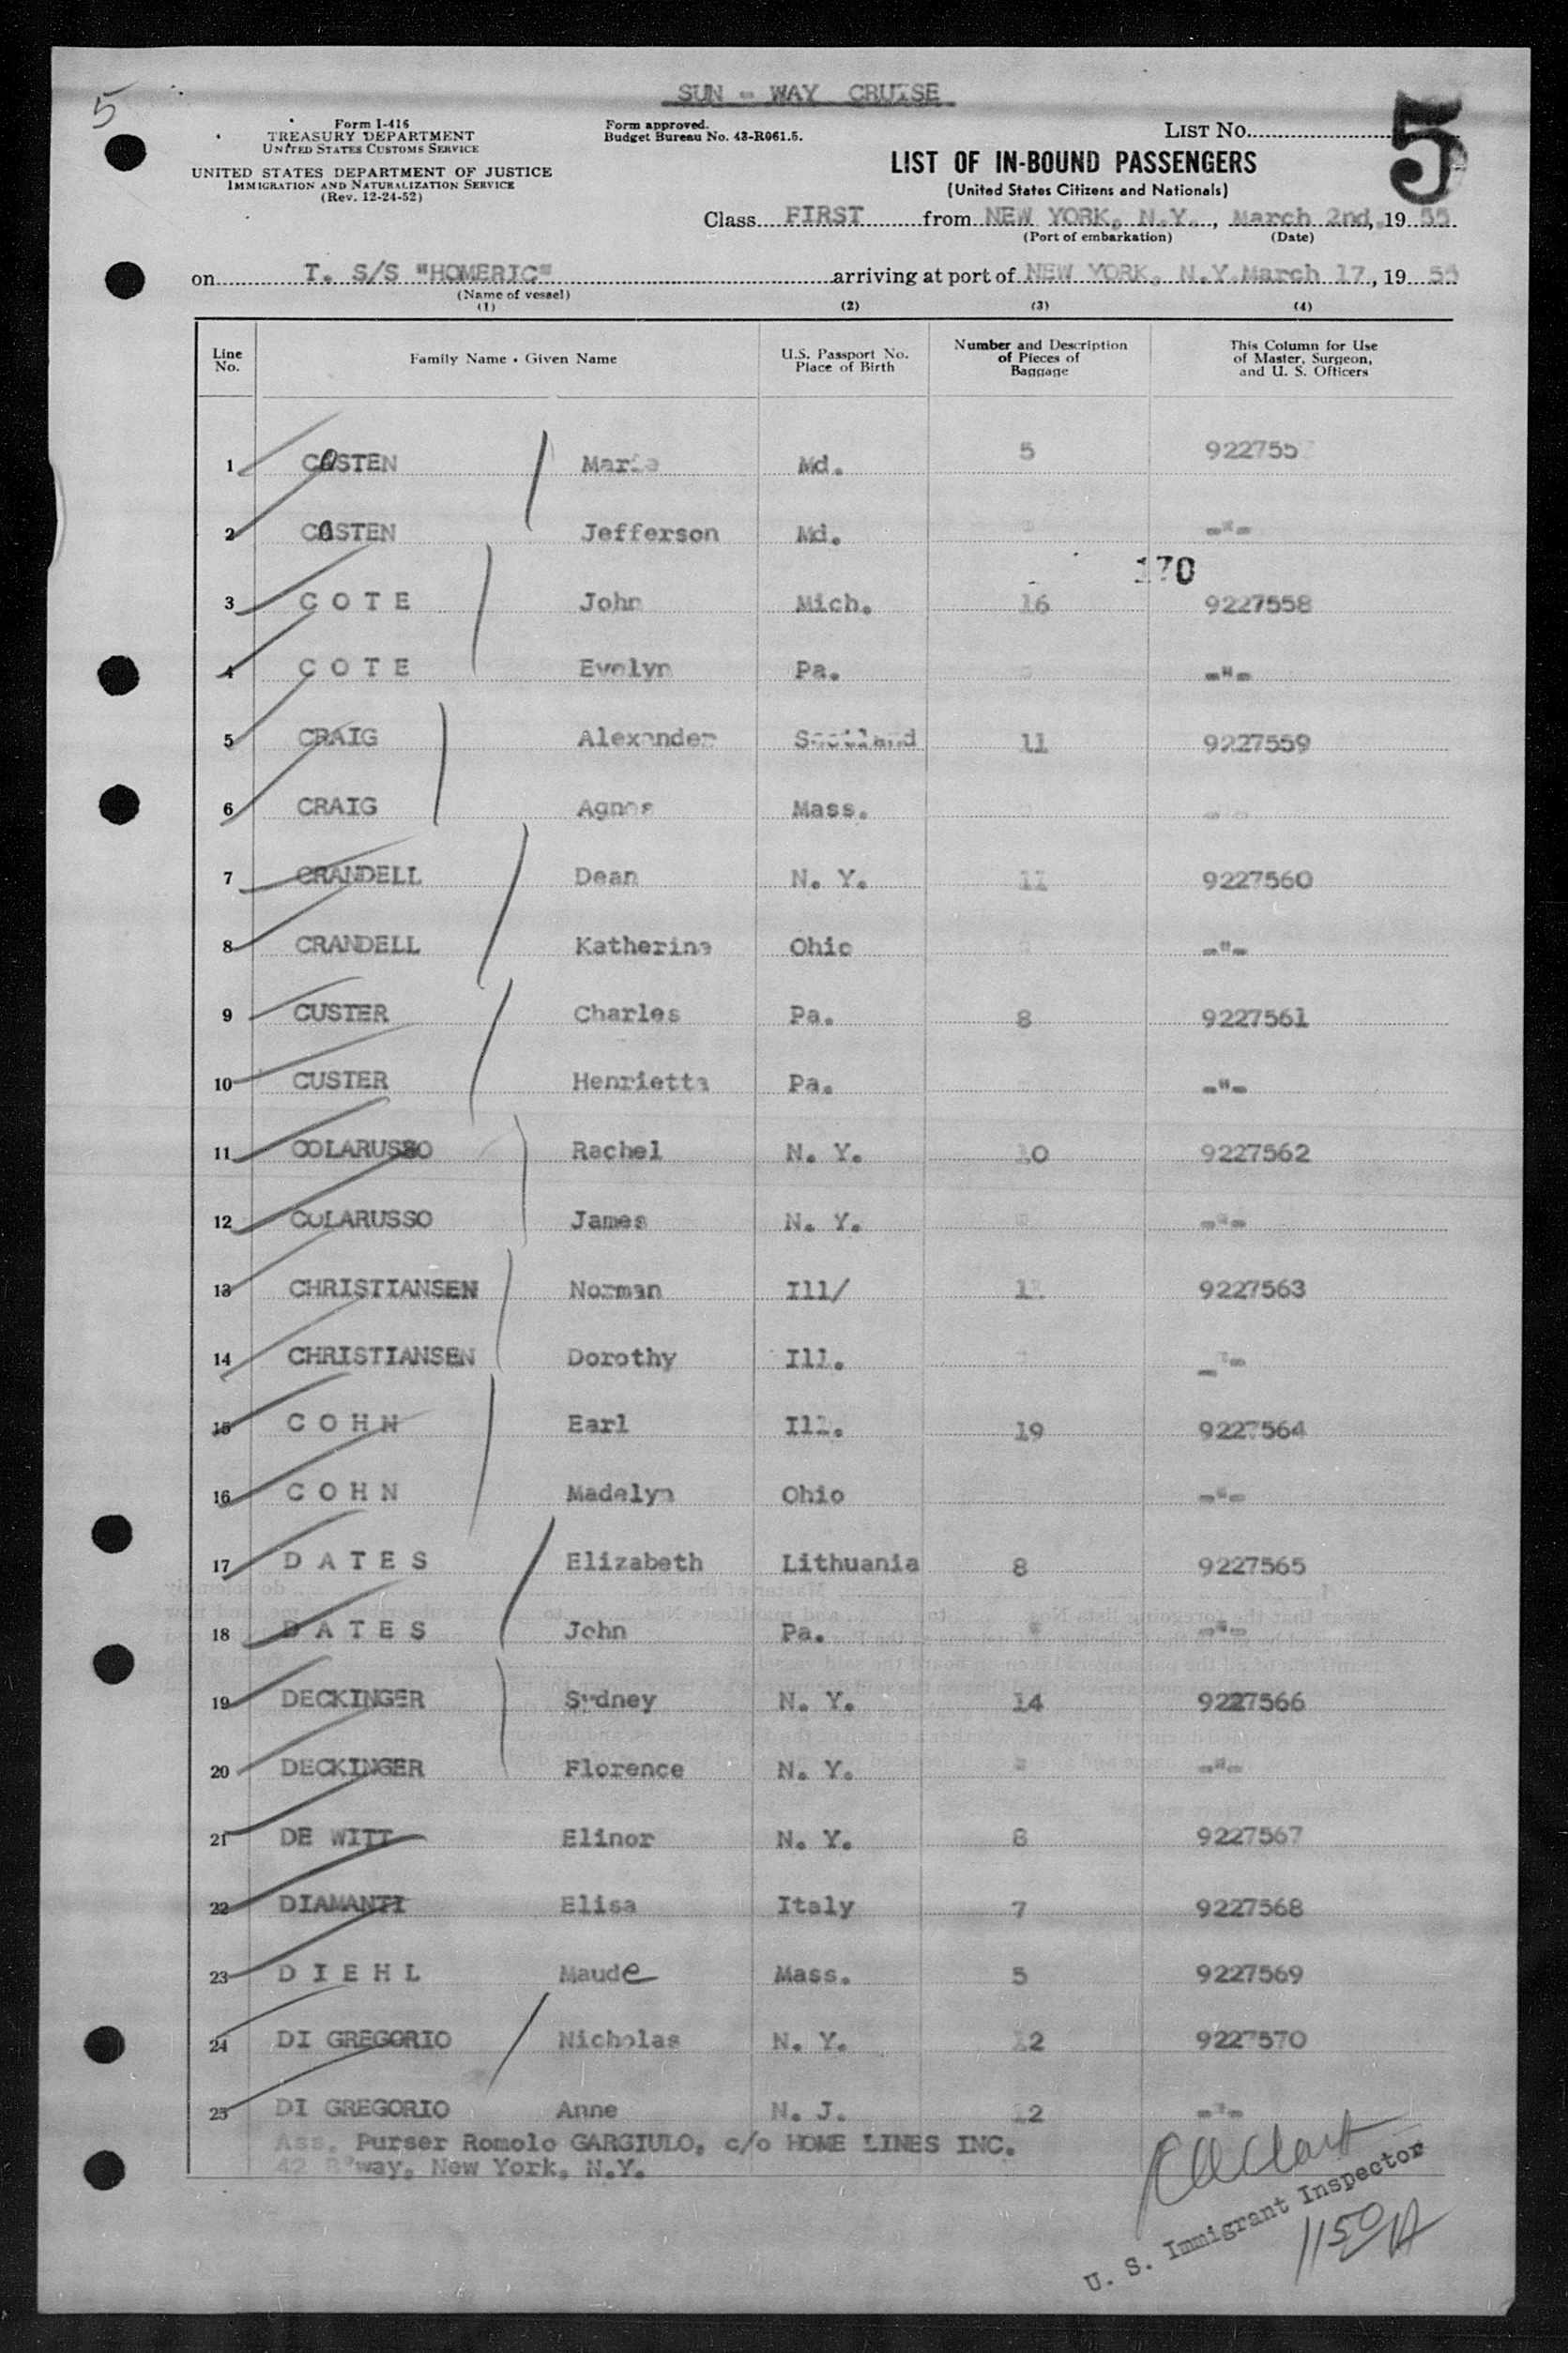 5
SUN - WAY CRUISE
Form I-416
TREASURY DEPARTMENT
UNITED STATES CUSTOMS SERVICE
UNITED STATES DEPARTMENT OF JUSTICE
IMMIGRATION AND NATURALIZATION SERVICE
(Rev. 12-24-52)
Form approved.
Budget Bureau No. 43-R061.5.
LIST No. 5
LIST OF IN-BOUND PASSENGERS
(United States Citizens and Nationals)
Class FIRST from NEW YORK, N.Y., March 2nd, 19 55
(Port of embarkation) (Date)
on T. S/S "HOMERIC" arriving at port of NEW YORK, N.Y. March 17, 19 55
(Name of vessel)
(1) (2) (3) (4)
Line No. Family Name - Given Name U.S. Passport No. Place of Birth Number and Description of Pieces of Baggage This Column for Use of Master, Surgeon, and U. S. Officers
1 CASTEN Marie Md. 5 922755
2 CASTEN Jefferson Md. -"-
170
3 C O T E John Mich. 16 9227558
4 C O T E Evelyn Pa. -"-
5 CRAIG Alexander Scotland 11 9227559
6 CRAIG Agnes Mass.
7 CRANDELL Dean N. Y. 11 9227560
8 CRANDELL Katherine Ohio -"-
9 CUSTER Charles Pa. 8 9227561
10 CUSTER Henrietta Pa. -"-
11 COLARUSSO Rachel N. Y. 10 9227562
12 COLARUSSO James N. Y. -"-
13 CHRISTIANSEN Norman Ill/ 9227563
14 CHRISTIANSEN Dorothy Ill. -"-
15 C O H N Earl Ill. 19 9227564
16 C O H N Madelyn Ohio -"-
17 D A T E S Elizabeth Lithuania 8 9227565
18 D A T E S John Pa. " -"-
19 DECKINGER Sydney N. Y. 14 9227566
20 DECKINGER Florence N. Y. " -"-
21 DE WITT Elinor N. Y. 8 9227567
22 DIAMANTI Elisa Italy 7 9227568
23 D I E H L Maude Mass. 5 9227569
24 DI GREGORIO Nicholas N. Y. 12 9227570
25 DI GREGORIO Anne N. J. 12 -"-
Ass. Purser Romolo GARGIULO, c/o HOME LINES INC.
42 B'way, New York, N.Y.
U. S. Immigrant Inspector